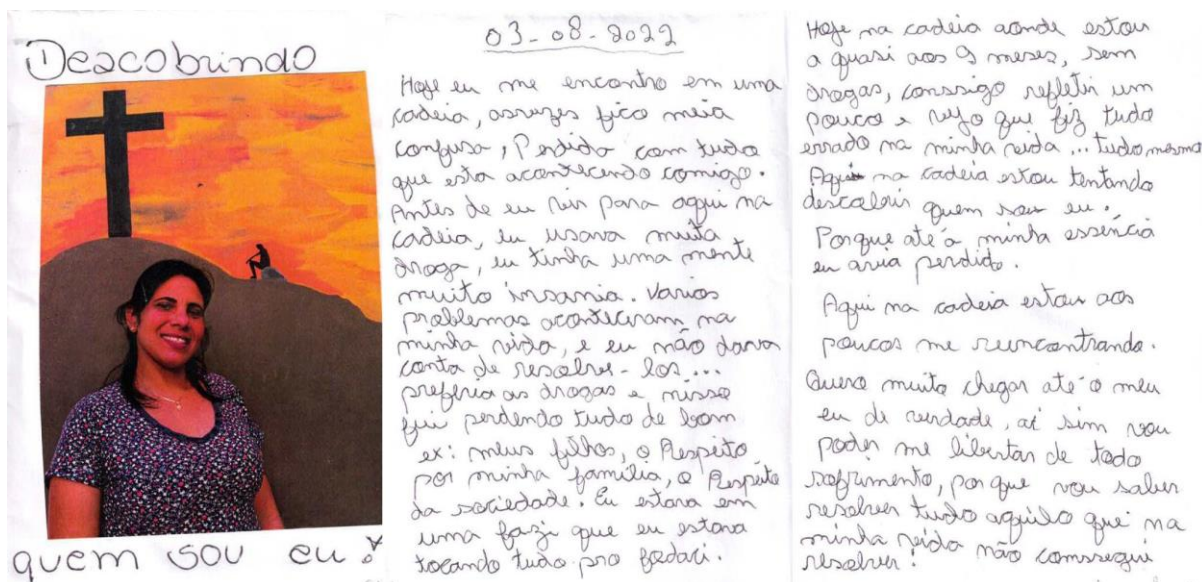 Descobrindo
quem sou eu?
03-08-2022
Hoje eu me encontro em uma
cadeia, asvezes fico meia
confusa, Perdida com tudo
que esta acontecendo comigo.
Antes de eu vir para aqui na
cadeia, eu usava muita
droga, eu tinha uma mente
muito insania. Varios
problemas aconteceram na
minha vida, e eu não dava
conta de resolve-los...
preferia as drogas e nisso
fui perdendo tudo de bom
ex: meus filhos, o Respeito
por minha família, o Respeito
da sociedade. Eu estava em
uma fazi que eu estava
tocando tudo pro fodaci.
Hoje na cadeia aonde estou
a quasi aos 9 meses, sem
drogas, conssigo refletir um
pouco e vejo que fiz tudo
errado na minha vida... tudo mesmo
Aqui na cadeia estou tentando
descobrir quem sou eu.
Porque até a minha essência
eu avia perdido.
Aqui na cadeia estou aos
poucos me reencontrando.
Quero muito chegar até o meu
eu de verdade, aí sim vou
poder me libertar de todo
sofrimento, porque vou saber
resolver tudo aquilo que na
minha vida não comssegui
resolver!